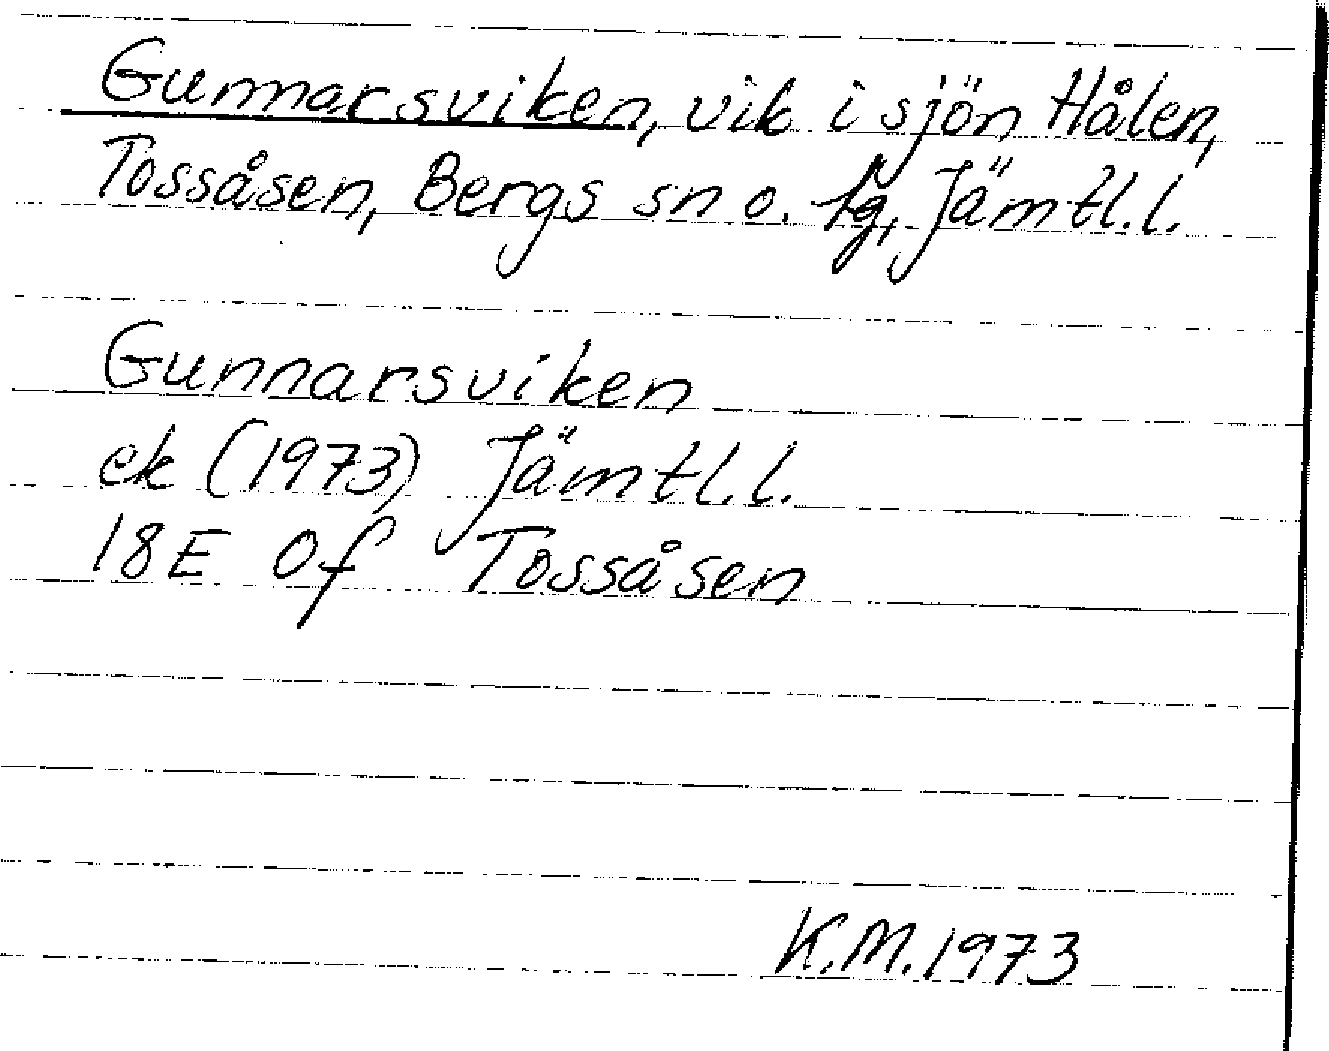 Gunnarsviken, vik i sjön Hålen,
Tossåsen, Bergs sn o. tg, Jämtl.l.
Gunnarsviken
ek (1973) Jämtl.l.
18E 0f Tossåsen
K.M.1973